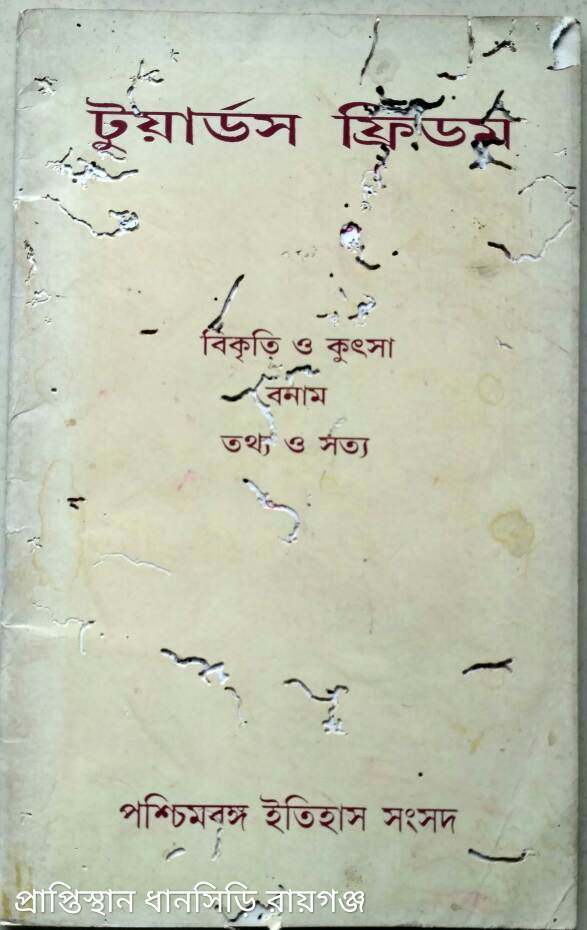 টুয়ার্ডস ফ্রিডম
বিকৃতি ও কুৎসা
বনাম
তথ্য ও সত্য
পশ্চিমবঙ্গ ইতিহাস সংসদ
প্রাপ্তিস্থান ধানসিডি রায়গঞ্জ